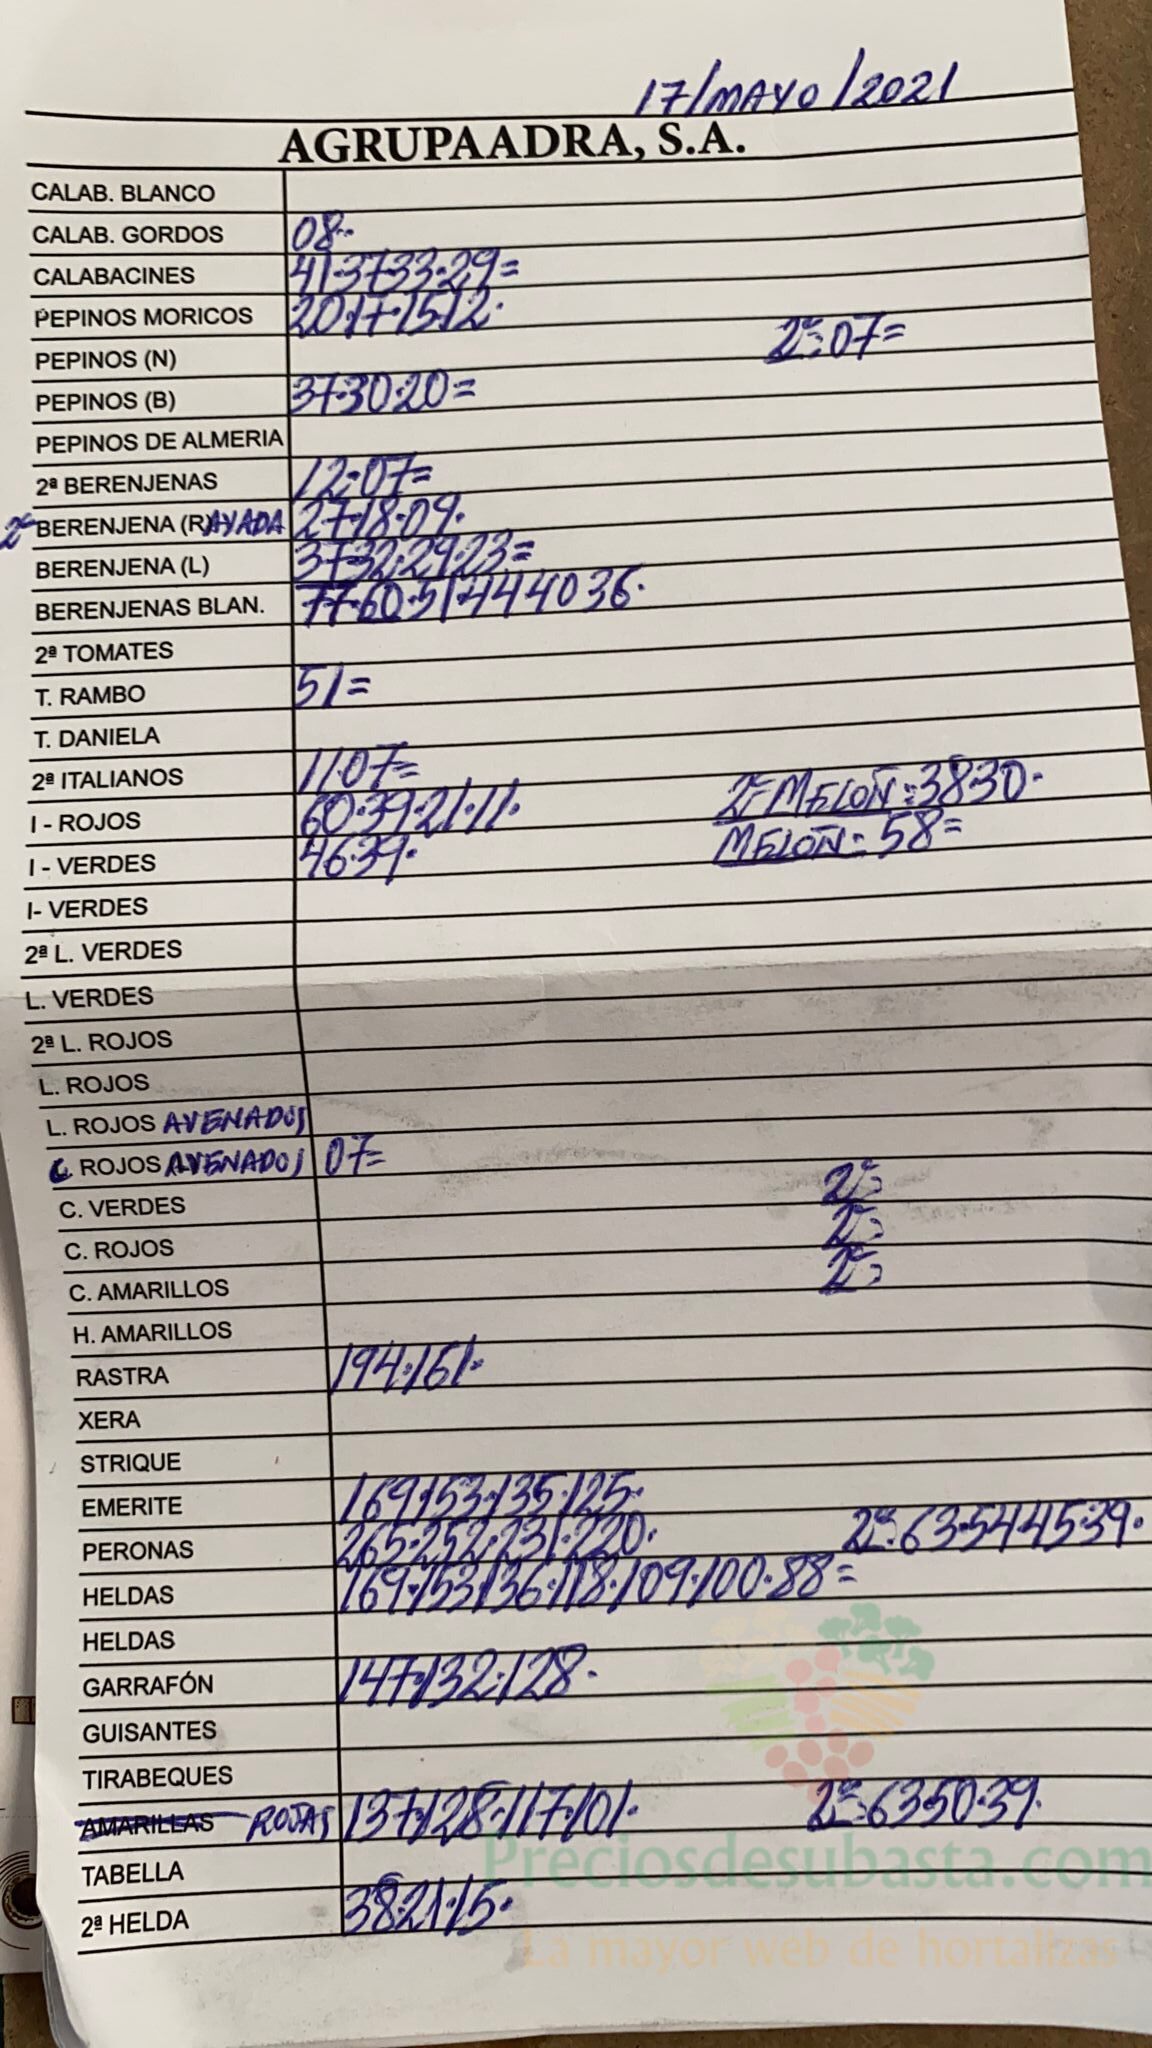 17/MAYO/2021
AGRUPAADRA, S.A.
CALAB. BLANCO
CALAB. GORDOS 08..
CALABACINES 41.37.33.29=
PEPINOS MORICOS 20.17.15.12.
PEPINOS (N) 2ª:07=
PEPINOS (B) 37.30.20=
PEPINOS DE ALMERIA
2ª BERENJENAS 12.07=
2ª BERENJENA (R)AYADA 27.18.09.
BERENJENA (L) 37.32.29.23=
BERENJENAS BLAN. 77.60.51.44.40 36.
2ª TOMATES
T. RAMBO 51=
T. DANIELA
2ª ITALIANOS 11.07=
I - ROJOS 60.39.21.11. 2ª MELOÑ:38.30.
I - VERDES 46.39. MELOÑ: 58=
I- VERDES
2ª L. VERDES
L. VERDES
2ª L. ROJOS
L. ROJOS
L. ROJOS AVENADOS
C. ROJOS AVENADOS 07=
C. VERDES 2ª:
C. ROJOS 2ª:
C. AMARILLOS 2ª:
H. AMARILLOS
RASTRA 194.161.
XERA
STRIQUE
EMERITE 169.153.135.125.
PERONAS 265.252.231.220. 2ª:63.54.45.39.
HELDAS 169.153.136.118.109.100.88=
HELDAS
GARRAFÓN 147.132.128.
GUISANTES
TIRABEQUES
AMARILLAS ROJAS 137.128.117.101. 2ª:63.50.39.
Preciosdesubasta.com
TABELLA
2ª HELDA 38.21.15.
La mayor web de hortalizas